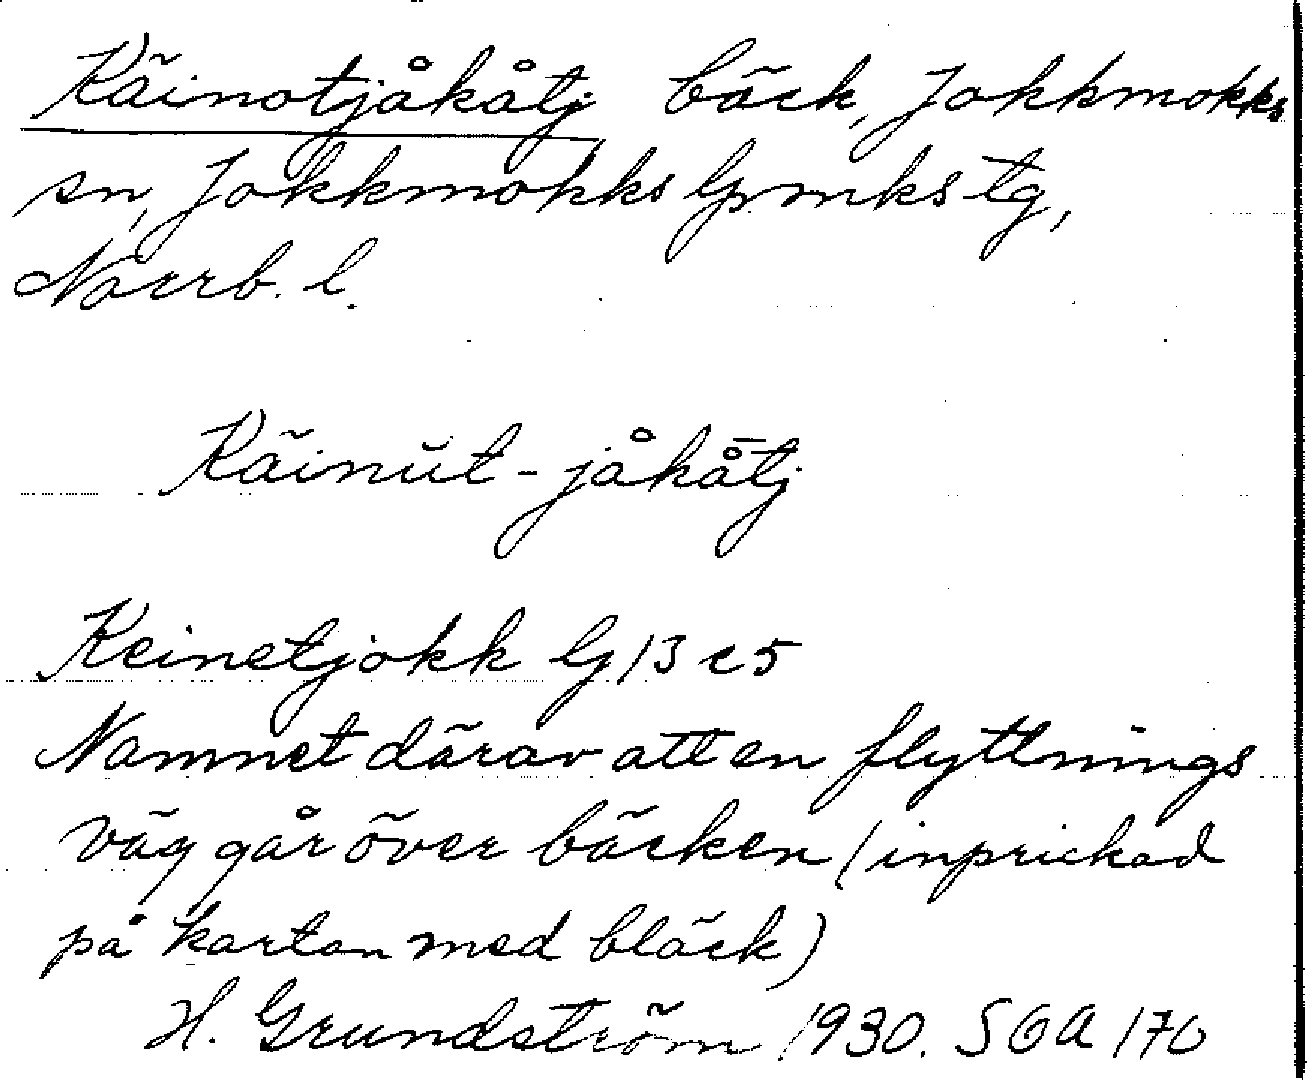 Käinotjåkåtj bäck, Jokkmokks
sn, Jokkmokks lpmks tg,
Norrb. l.
Käinŭt-jåkå̄tj
Keinetjokk G 13 c5
Namnet därav att en flyttnings
väg går över bäcken (inprickad
på kartan med bläck)
H. Grundström 1930. SOA 170